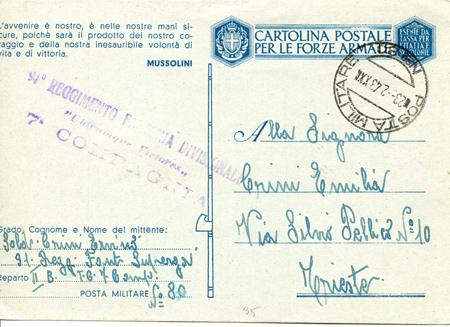 L'avvenire è nostro, è nelle nostre mani si-
cure, poichè sarà il prodotto del nostro co-
raggio e della nostra inesauribile volontà di
vita e di vittoria.
MUSSOLINI
CARTOLINA POSTALE
PER LE FORZE ARMATE
ESENTE DA
TASSA PER
L'ITALIA E
COLONIE
POSTA MILITARE
23-2.43.XXI
91° REGGIMENTO FANTERIA DIVISIONALE
7ª COMPAGNIA
Alla Signora
Crini Emilia
Via Silvio Pellico N° 10
Trieste
Grado, Cognome e Nome del mittente:
Sold. Crini
91. Regg. Fant. Superga
Reparto II B. T.G. 7 Comp.
POSTA MILITARE N° 80